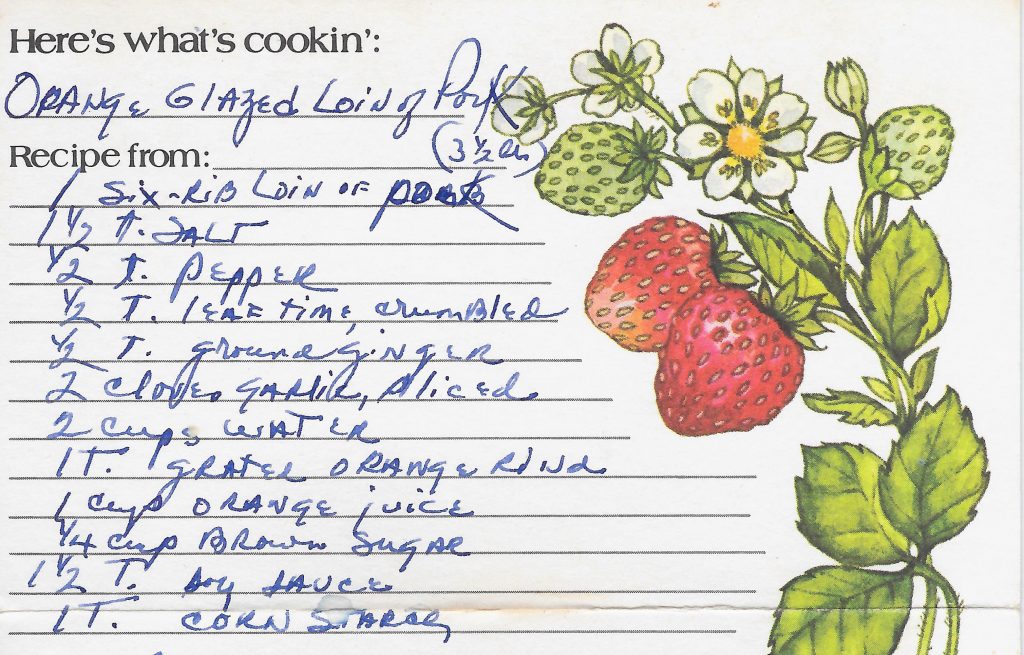 Here's what's cookin':
ORANGE GlAZed LoiN of PoRK
Recipe from: (3 ½ lb)
1 Six-RiB LoiN OF PORK
1 ½ t. SALT
½ t. PEPPER
½ T. lEAF TIME, CRUMBlEd
½ T. ground giNGER
2 cloves GARliC, Sliced
2 cups WATER
1T. GRATED ORANGE RiNd
1 cup ORANGE juice
¼ cup BROWN SUGAR
1 ½ T. Soy SAUCE
1T. CORN STARCH